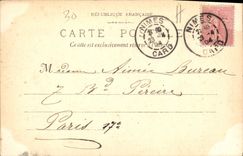 30
RÉPUBLIQUE FRANÇAISE
CARTE POSTALE
Ce côté est exclusivement réservé
NIMES
GARD
NIMES
GARD
Madame Aimée Bureau
7 Bd Pereire
Paris 17e